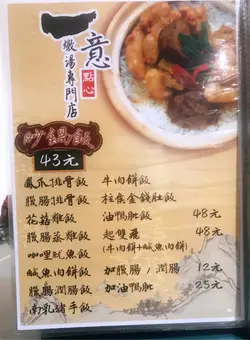 一意
點心
燉湯專門店
砂鍋飯
43元
鳳爪排骨飯
臘腸排骨飯
花菇雞飯
臘腸蒸雞飯
咖哩魷魚飯
鹹魚肉餅飯
臘腸潤腸飯
南乳豬手飯
牛肉餅飯
桂花金錢肚飯
油鴨髀飯 48元
起雙飛 48元
(牛肉餅+鹹魚肉餅)
加臘腸/潤腸 12元
加油鴨髀 25元